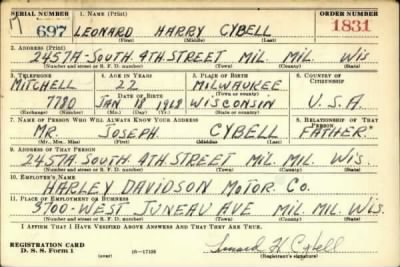 SERIAL NUMBER 1. NAME (Print) ORDER NUMBER
697 LEONARD HARRY CYBELL 1831
(First) (Middle) (Last)
2. ADDRESS (Print)
2457A-SOUTH 4TH STREET MIL. MIL. WIS
(Number and street or R. F. D. number) (Town) (County) (State)
3. TELEPHONE 4. AGE IN YEARS 5. PLACE OF BIRTH 6. COUNTRY OF CITIZENSHIP
MITCHELL 22 MILWAUKEE
DATE OF BIRTH (Town or county)
7780 JAN 18 1918 WISCONSIN U.S.A.
(Exchange) (Number) (Mo.) (Day) (Yr.) (State or country)
7. NAME OF PERSON WHO WILL ALWAYS KNOW YOUR ADDRESS 8. RELATIONSHIP OF THAT PERSON
MR. JOSEPH CYBELL FATHER
(Mr., Mrs., Miss) (First) (Middle) (Last)
9. ADDRESS OF THAT PERSON
2457A SOUTH 4TH STREET MIL. MIL. WIS.
(Number and street or R. F. D. number) (Town) (County) (State)
10. EMPLOYER'S NAME
HARLEY DAVIDSON MOTOR CO.
11. PLACE OF EMPLOYMENT OR BUSINESS
3700-WEST JUNEAU AVE MIL. MIL. WIS.
(Number and street or R. F. D. number) (Town) (County) (State)
I AFFIRM THAT I HAVE VERIFIED ABOVE ANSWERS AND THAT THEY ARE TRUE.
REGISTRATION CARD
D. S. S. Form 1 16-17105 Leonard H. Cybell
(Registrant's signature)